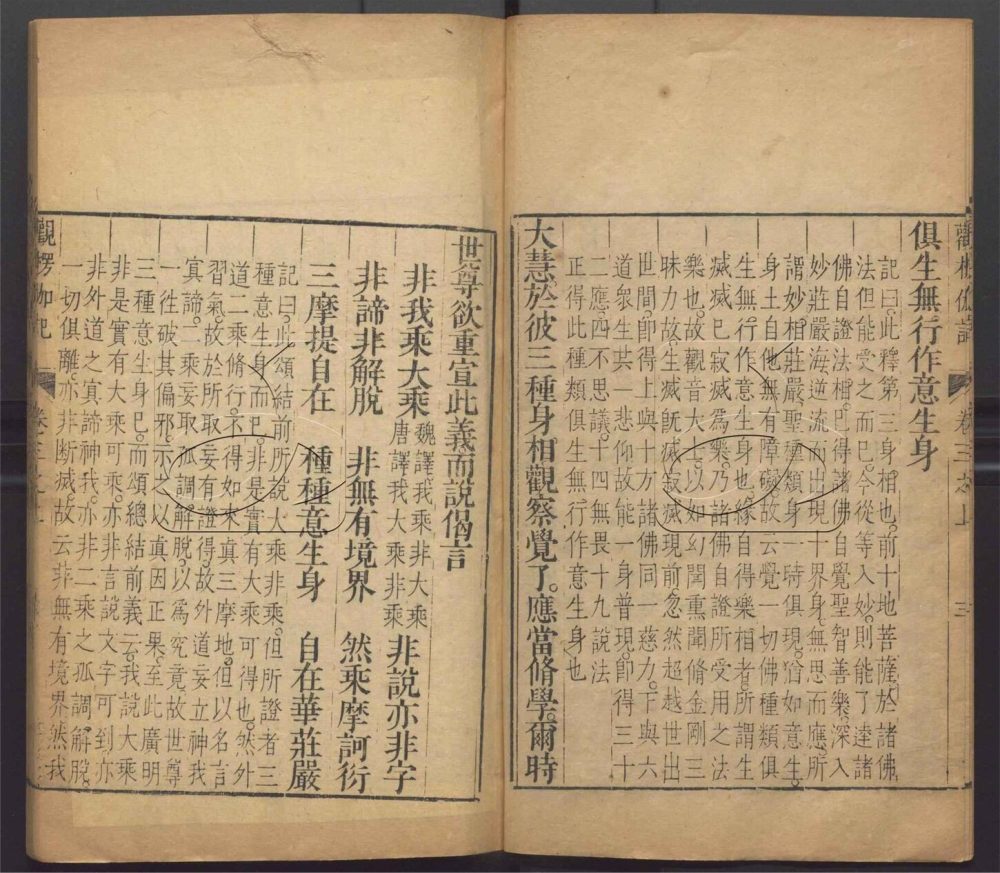 觀楞伽記 卷三之上 三
俱生無行作意生身
記曰。此釋第三身相也。前十地菩薩於諸佛
法但能受之而已。今從等入妙。則能了達諸
佛自證法相。已得諸佛自覺聖智善樂。深入
妙莊嚴海。逆流而出。現十界身。無思而應。所
謂妙相莊嚴。聖種類身。一時俱現。猶如意生。
身土自他。無有障礙。故云覺一切佛種類俱
生無行作意生身也。緣自得樂相者。所謂生
滅滅已。寂滅爲樂。乃諸佛自證所受用之法
樂也。故觀音大士。以如幻聞熏聞脩金剛三
昧力故。生滅旣滅。寂滅現前。忽然超越世出
世間。卽得上與十方諸佛同一慈力。下與六
道衆生共一悲仰。故能一身普現。卽得三十
二應。四不思議。十四無畏。十九說法
正得此種類俱生無行作意生身也
大慧於彼三種身相觀察覺了。應當脩學。爾時
世尊欲重宣此義而說偈言
非我乘大乘 魏譯我乘非大乘 唐譯我大乘非乘 非說亦非字
非諦非解脫 非無有境界 然乘摩訶衍
三摩提自在 種種意生身 自在華莊嚴
記曰。此頌結前所說大乘非乘。但所證者三
種意生身而已。非是實有大乘可得也。然外
道二乘脩行。不得如來真三摩地。但以名言
習氣。故於所取。妄有證得。故外道妄立神我
真諦。二乘妄取孤調解脫。以爲究竟。故世尊
一往破其偏邪。示之以真因正果。至此廣明
三種意生身已。而頌總結前義云。我說大乘
非是實有大乘可乘。亦非言說文字可到。亦
非外道之真諦神我。亦非二乘之孤調解脫。
一切俱離。亦非斷滅。故云非無有境界。然我
觀楞伽記 卷